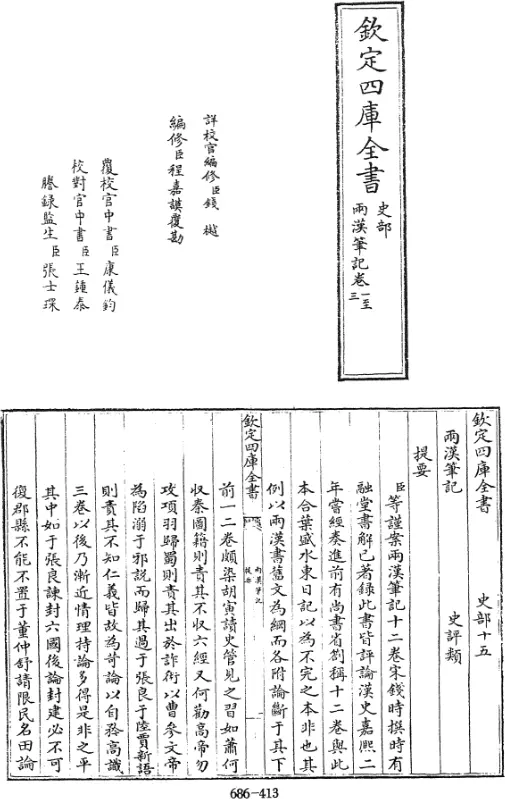 欽定四庫全書
史部
兩漢筆記卷一至三
詳校官編修臣錢樾
編修臣程嘉謨覆勘
覆校官中書臣康儀鈞
校對官中書臣王鍾泰
謄録監生臣張士琛
欽定四庫全書 史部十五
兩漢筆記 史評類
提要
臣等謹案兩漢筆記十二卷宋錢時撰時有
融堂書解已著録此書皆評論漢史嘉熙二
年嘗經奏進前有尚書省劄稱十二卷與此
本合葉盛水東日記以為不完之本非也其
例以兩漢書舊文為綱而各附論斷于其下
欽定四庫全書
兩漢筆記
提要
前一二卷頗染胡寅讀史管見之習如蕭何
收秦圖籍則責其不收六經又何勸高帝勿
攻項羽歸蜀則責其出於詐術以曹參文帝
為陷溺于邪說而歸其過于張良于陸賈新語
則責其不知仁義皆故為苛論以自矜高識
三卷以後乃漸近情理持論多得是非之平
其中如于張良諫封六國後論封建必不可
復郡縣不能不置于董仲舒請限民名田論
686-413